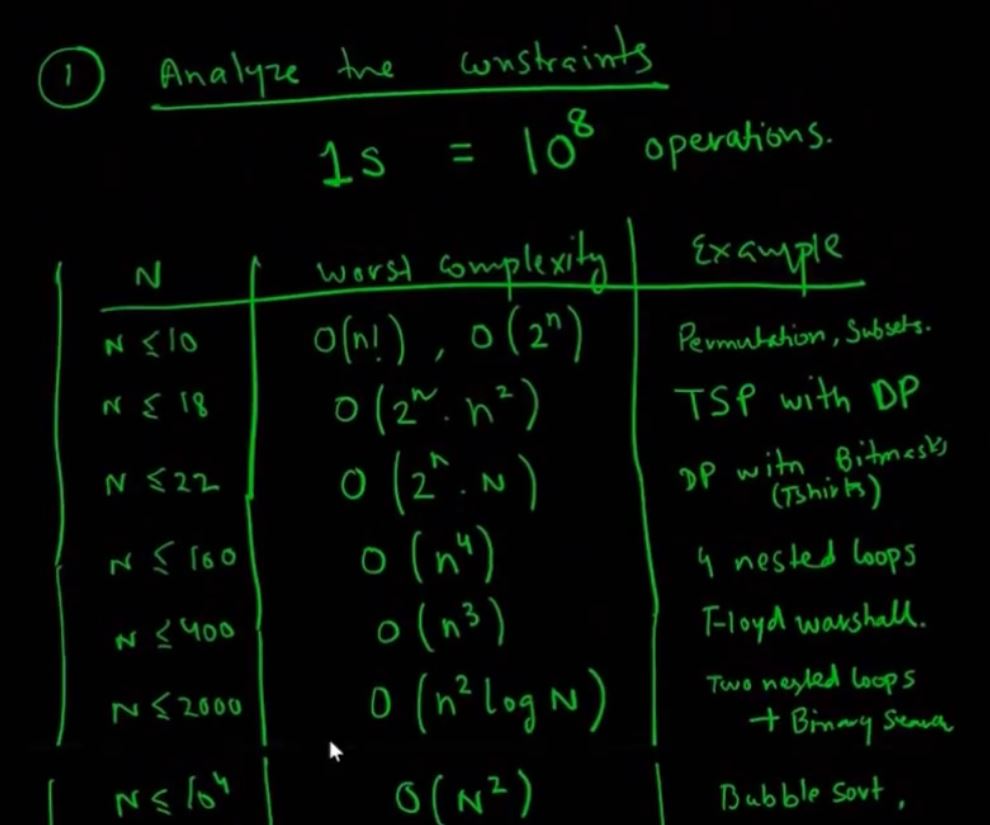 1 Analyze the constraints
1s = 10⁸ operations.
N worst complexity Example
N ≤ 10 O(n!), O(2ⁿ) Permutation, Subsets.
N ≤ 18 O(2ᴺ. n²) TSP with DP
N ≤ 22 O(2ⁿ. N) DP with Bitmasks
(Tshirts)
N ≤ 100 O(n⁴) 4 nested loops
N ≤ 400 O(n³) Floyd warshall.
N ≤ 2000 O(n² log N) Two nested loops
+ Binary Search
N ≤ 10⁴ O(N²) Bubble sort,